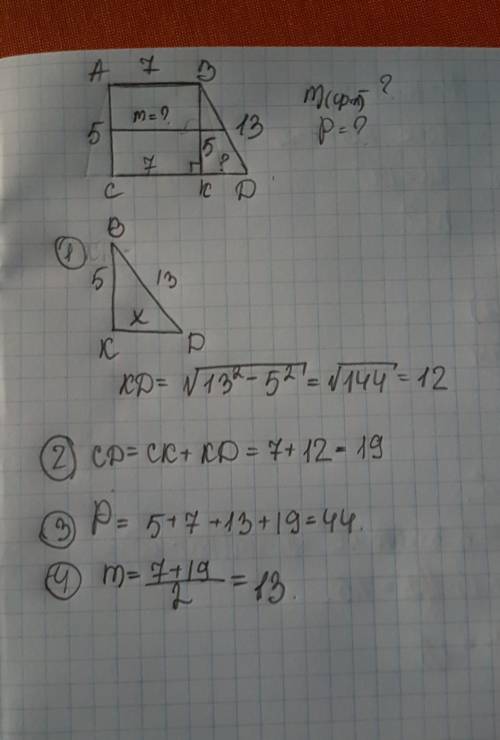 A 7 B
m=? 13 m(ср.л) ?
5 5 P=?
7 ?
C K D
① B
5 13
x
K D
KD = √13² - 5² = √144 = 12
② CD = CK + KD = 7 + 12 = 19
③ P = 5 + 7 + 13 + 19 = 44.
④ m = 7+19/2 = 13.